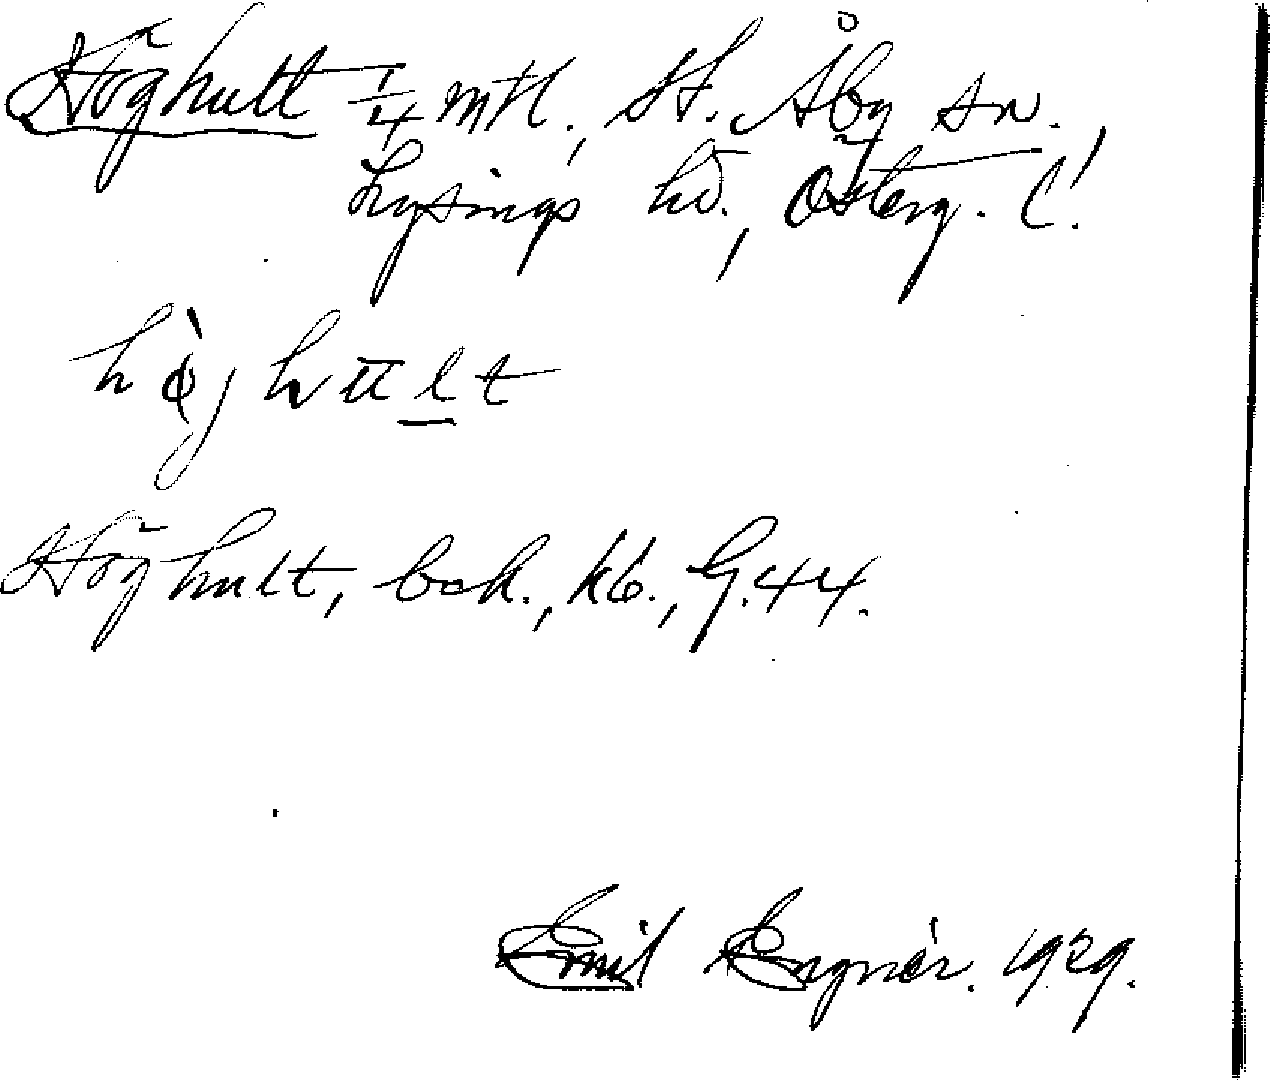 Höghult 1/4 mtl., St. Åby sn.,
Lysings hd., Österg. l.
hø̀jhult
Höghult, bek., kb., G.44.
Emil Engnér. 1929.